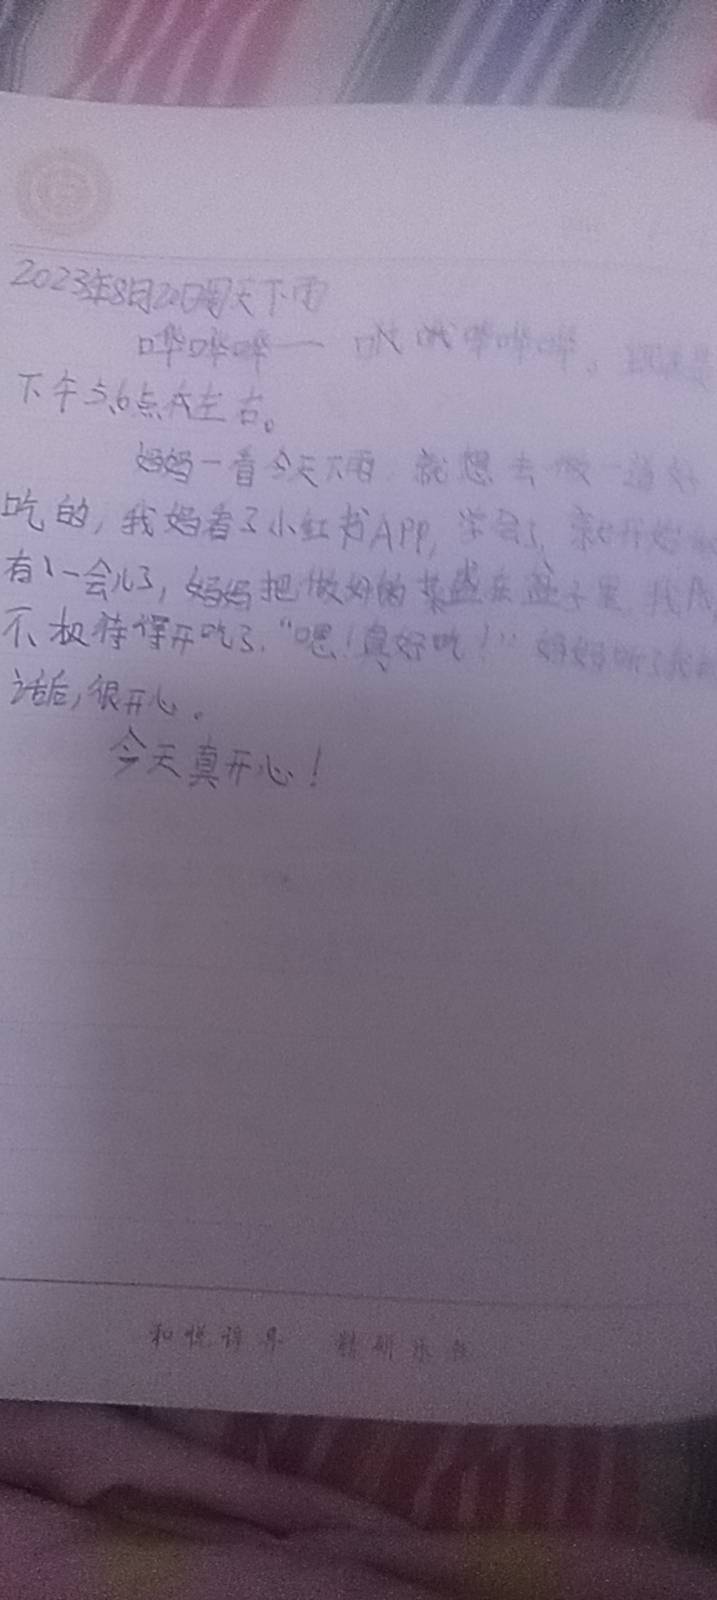 2023年8月20日周天下雨
哗哗哗一 哗哗哗。
下午5、6点左右。
妈妈一看今天下雨,就想去做一道好
吃的,我妈看了小红书APP,学会了,就开始
有1一会儿了,妈妈把做好的菜盛在盘子里,我
不极待得开吃了,“嗯!真好吃!”妈妈听了我的
话后,很开心。
今天真开心!
和悦 精研乐